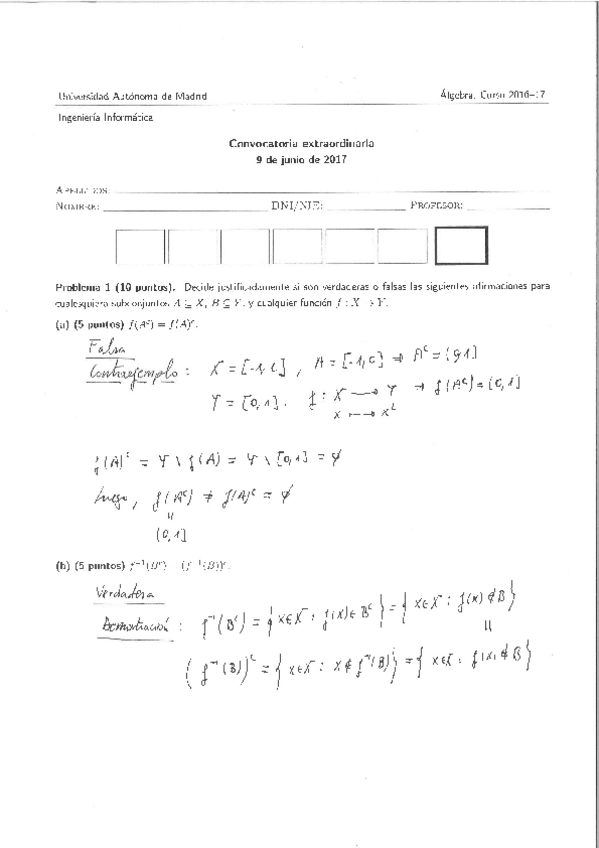 Universidad Autónoma de Madrid Álgebra. Curso 2016–17
Ingeniería Informática
Convocatoria extraordinaria
9 de junio de 2017
Apellidos:
Nombre: DNI/NIE: Profesor:
Problema 1 (10 puntos). Decide justificadamente si son verdaderas o falsas las siguientes afirmaciones para
cualesquiera subconjuntos A ⊆ X, B ⊆ Y, y cualquier función f : X → Y.
(a) (5 puntos) f(Aᶜ) = f(A)ᶜ.
Falsa
Contraejemplo: X = [-1, 1], A = [-1, 0] ⇒ Aᶜ = (0, 1]
Y = [0, 1]. f : X ⟶ Y ⇒ f(Aᶜ) = (0, 1]
x ⟼ x²
f(A)ᶜ = Y \ f(A) = Y \ [0, 1] = ∅
Luego, f(Aᶜ) ≠ f(A)ᶜ = ∅
"
(0, 1]
(b) (5 puntos) f⁻¹(Bᶜ) = (f⁻¹(B))ᶜ.
Verdadera
Demostración: f⁻¹(Bᶜ) = {x∈X : f(x)∈Bᶜ} = {x∈X : f(x)∉B}
"
(f⁻¹(B))ᶜ = {x∈X : x∉f⁻¹(B)} = {x∈X : f(x)∉B}